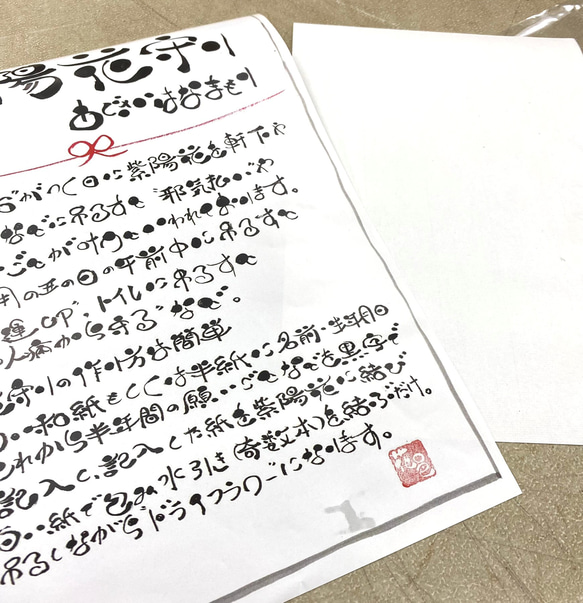 陽花守り
あじさいはなまもり
がつく日に紫陽花を軒下や
などに吊るすと 邪気払いや
ごとが叶うといわれております。
月の丑の日の午前中に吊るすと
運UP、トイレに吊るすと
人病から守る など。
守りの作り方は簡単
い和紙もしくは半紙に名前・生年月日
これから半年間の願いごとなどを黒字で
記入し、記入した紙を紫陽花に結び
白い紙で包み水引き(奇数本)を結ぶだけ。
吊るしながらドライフラワーになります。